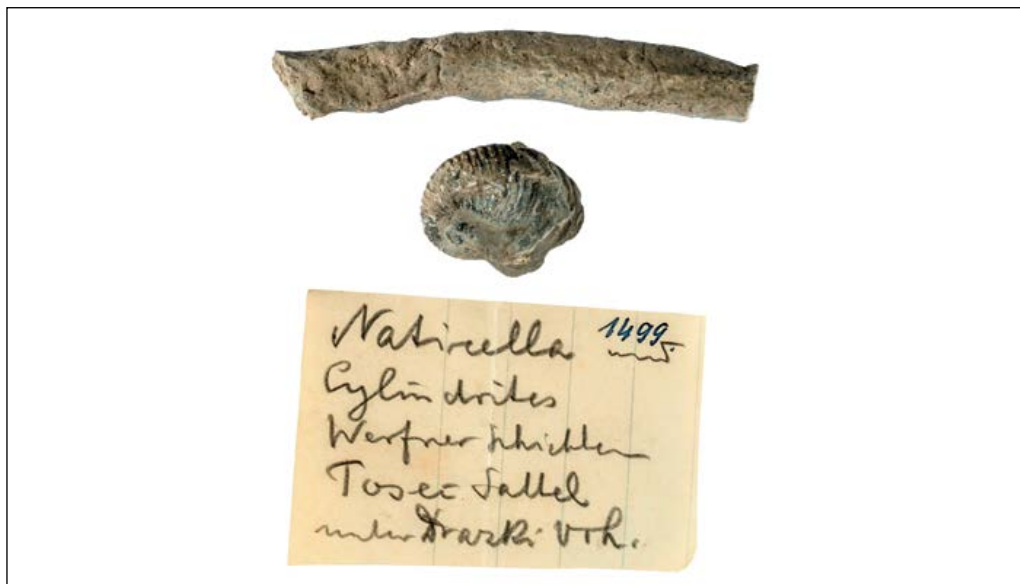 Naticella 1499
Cylindrites
Werfner Schichten
Tosec Sattel
unter Draski vrh.